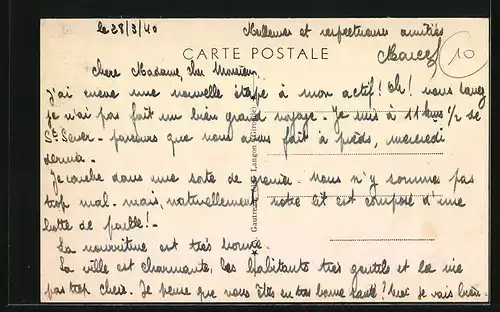 le 28/3/40
Meilleures et respectueuses amitiés
CARTE POSTALE
Marcel
10
Chère Madame, cher Monsieur,
J'ai encore une nouvelle étape à mon actif! Oh! vous savez
je n'ai pas fait un bien grand voyage. Je suis à 11 kms ½ de
St Sever - parcours que nous avons fait à pieds, mercredi
dernier.
Je couche dans une sorte de grenier. Nous n'y sommes pas
trop mal - mais, naturellement, notre lit est composé d'une
botte de paille!.
La nourriture est très bonne.
La ville est charmante, les habitants très gentils et la vie
pas trop chère. Je pense que vous êtes en très bonne santé? Moi je vais bien.
Langon (Gironde)